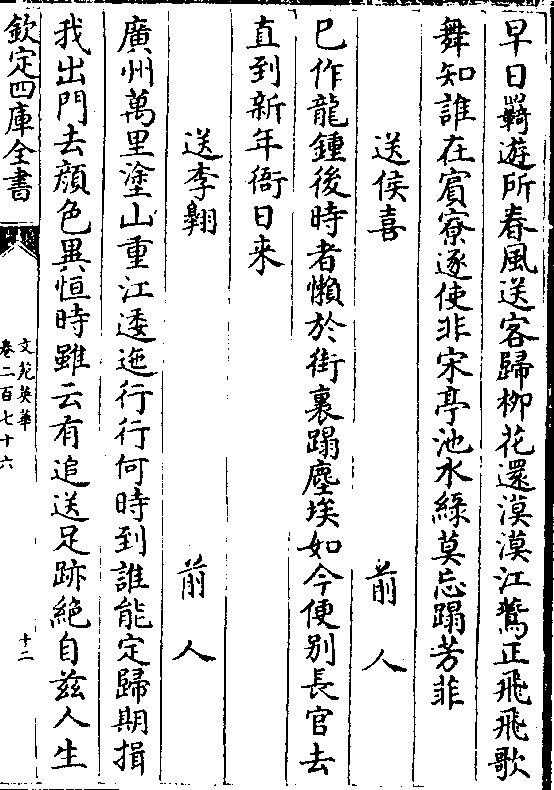 早日羇遊所春風送客歸柳花還漠漠江鷰正飛飛歌
舞知誰在賓寮逐使非宋亭池水綠莫忘蹋芳菲
送侯喜　前人
巳作龍鍾後時者懶於街裏蹋塵埃如今便别長官去
直到新年衙日来
送李翺　前人
廣州萬里塗山重江逶迤行行何時到誰能定歸期揖
我出門去顔色異恒時雖云有追送足跡絶自兹人生
欽定四庫全書
文苑英華
卷二百七十六
十二